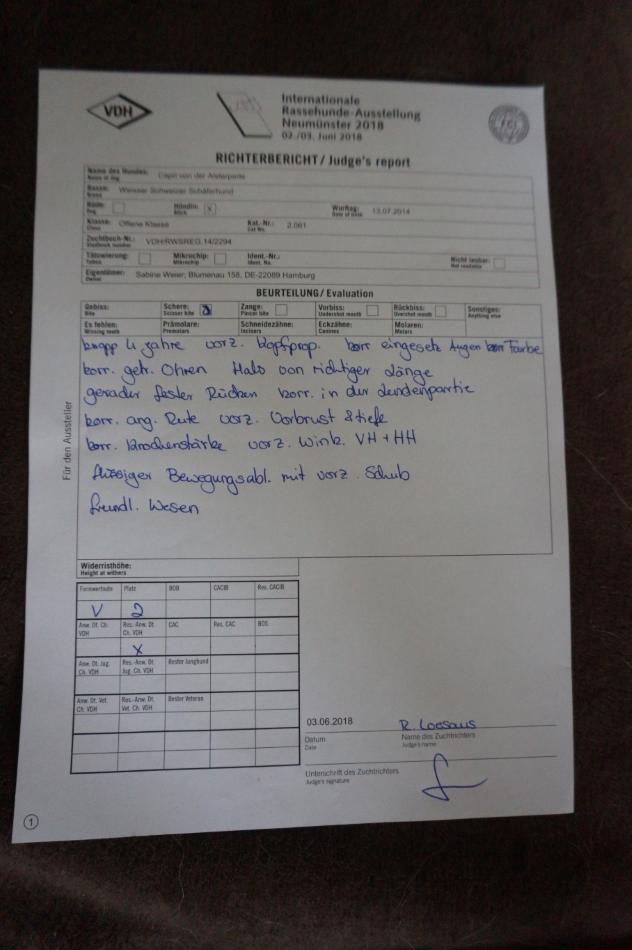 VDH
Internationale
Rassehunde-Ausstellung
Neumünster 2018
02./03. Juni 2018
FCI
RICHTERBERICHT / Judge's report
Name des Hundes: Capri von der Alsterperle
Name of dog
Rasse: Weisser Schweizer Schäferhund
Breed
Rüde: Hündin: x Wurftag: 13.07.2014
Dog Bitch Date of birth
Klasse: Offene Klasse Kat.-Nr.: 2.061
Class Cat. No.
Zuchtbuch-Nr.: VDH/RWSREG.14/2294
Studbook number
Tätowierung: Mikrochip: Ident.-Nr.: Nicht lesbar:
Tattoo Mikrochip Ident. No. Not readable
Eigentümer: Sabine Weier, Blumenau 158, DE-22089 Hamburg
Owner
BEURTEILUNG / Evaluation
Gebiss: Schere: Zange: Vorbiss: Rückbiss: Sonstiges:
Bite Scissor bite Pincer bite Undershot mouth Overshot mouth Anything else
Es fehlen: Prämolare: Schneidezähne: Eckzähne: Molaren:
Missing teeth Premolars Incisors Canines Molars
knapp 4 Jahre vorz. Kopfprop. korr eingesetz Augen korr Farbe
korr. getr. Ohren Hals von richtiger Länge
gerader fester Rücken korr. in der Lendenpartie
korr. ang. Rute vorz. Vorbrust & tiefe
korr. Knochenstärke vorz. Wink. VH + HH
flüssiger Bewegungsabl. mit vorz. Schub
freundl. Wesen
Für den Aussteller
Widerristhöhe:
Height at withers
Formwertnote Platz BOB CACIB Res. CACIB
V 2
Anw. Dt. Ch. VDH Res.-Anw. Dt. Ch. VDH CAC Res. CAC BOS
X
Anw. Dt. Jug. Ch. VDH Res.-Anw. Dt. Jug. Ch. VDH Bester Junghund
Anw. Dt. Vet. Ch. VDH Res.-Anw. Dt. Vet. Ch. VDH Bester Veteran
03.06.2018 R.
Datum Name des Zuchtrichters
Date Judge's name
Unterschrift des Zuchtrichters
Judge's signature
1